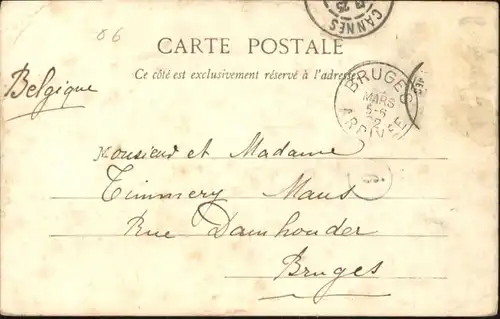 86
CANNES
CARTE POSTALE
Ce côté est exclusivement réservé à l'adresse
Belgique
BRUGES
MARS
5-6
ARRIVÉE
Monsieur et Madame
Timmery Maus
Rue Damhouder
6
Bruges